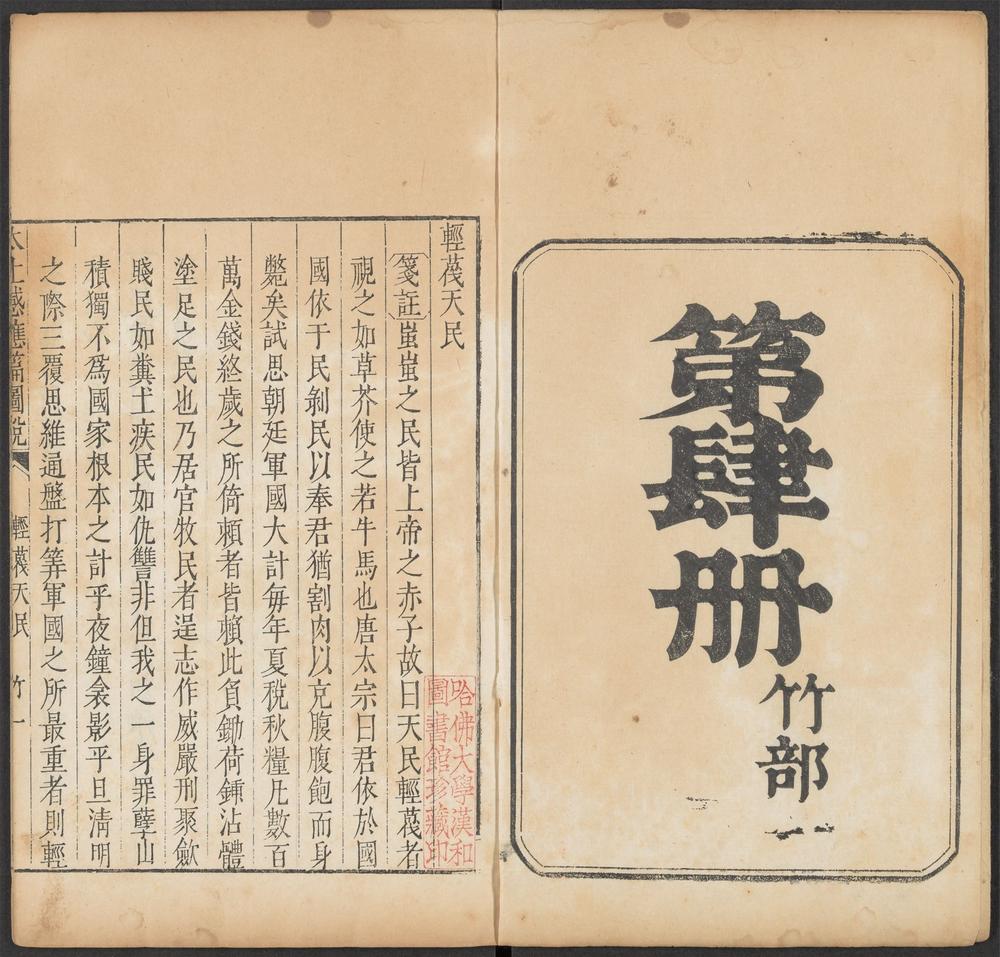 第肆册
竹部
輕蔑天民
箋註蚩蚩之民皆上帝之赤子故曰天民輕蔑者
視之如草芥使之若牛馬也唐太宗曰君依於國
國依于民剝民以奉君猶割肉以充腹腹飽而身
斃矣試思朝廷軍國大計每年夏稅秋糧凡數百
萬金錢終歲之所倚賴者皆賴此負鋤荷鍤沾體
塗足之民也乃居官牧民者逞志作威嚴刑聚歛
賤民如糞土疾民如仇讐非但我之一身罪孽山
積獨不爲國家根本之計乎夜鐘衾影平旦清明
之際三覆思維通盤打筭軍國之所最重者則輕
太上感應篇圖說
輕蔑天民
竹一
哈佛大學漢和
圖書館珍藏印